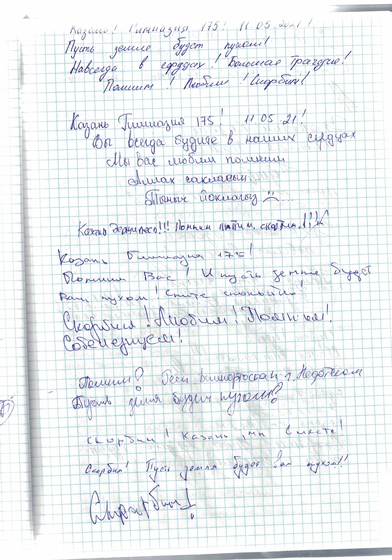 Казань! Гимназия 175! 11.05.2021!
Пусть земля будет пухом!
Навсегда в сердцах! Большая трагедия!
Помним! Любим! Скорбим!
Казань Гимназия 175! 11 05 21!
Вы всегда будите в наших сердцах
Мы вас любим помним
Аллах сакласын
Тыныч йоклагыз
Казань держись!!! Помним любим, скорбим!!!
Казань Гимназия 175!
Помним Вас! И пусть земля будет
Вам пухом! Спите спокойно!
Скорбим! Любим! Помним!
Соболезнуем!
Помним!
Пусть земля будет пухом!
Скорбим! Казань мы вместе!
Скорбим! Пусть земля будет вам пухом!!
Скорбим!